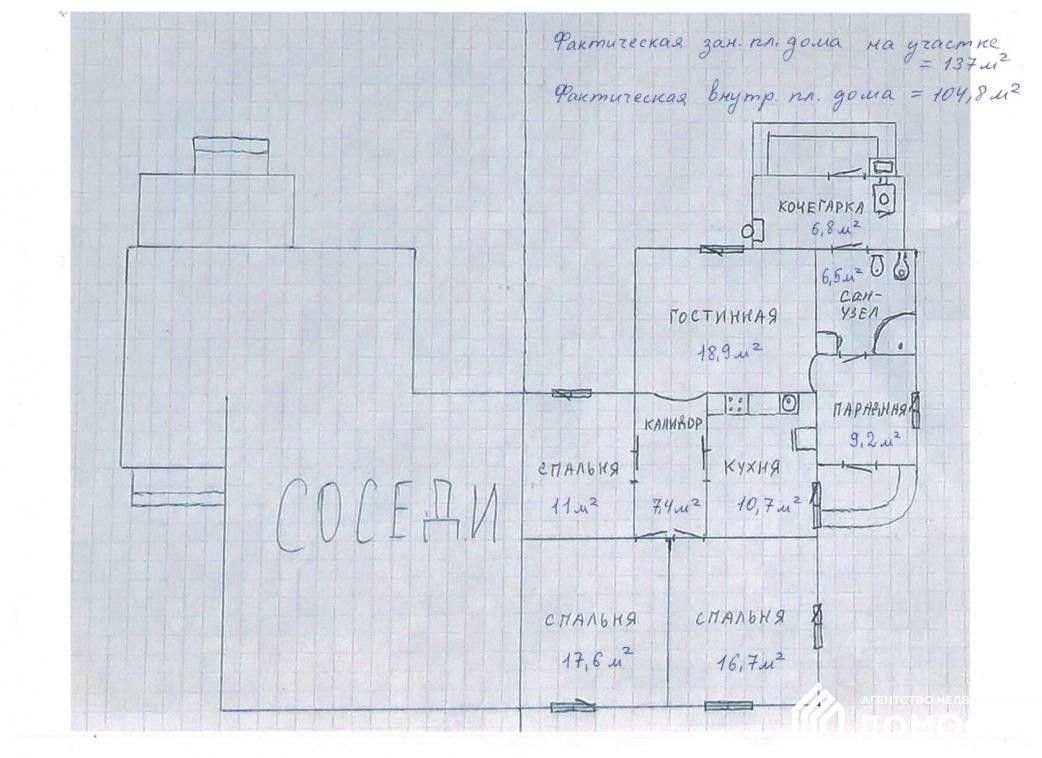 Фактическая зан. пл. дома на участке
= 137 м²
Фактическая внутр. пл. дома = 104,8 м²
КОЧЕГАРКА
6,8 м²
6,5 м²
САН-
УЗЕЛ
ГОСТИННАЯ
18,9 м²
КАЛИДОР
7,4 м²
ПАРАДНАЯ
9,2 м²
СПАЛЬНЯ
11 м²
КУХНЯ
10,7 м²
СОСЕДИ
СПАЛЬНЯ
17,6 м²
СПАЛЬНЯ
16,7 м²
АГЕНТСТВО НЕДВ
ДОМО